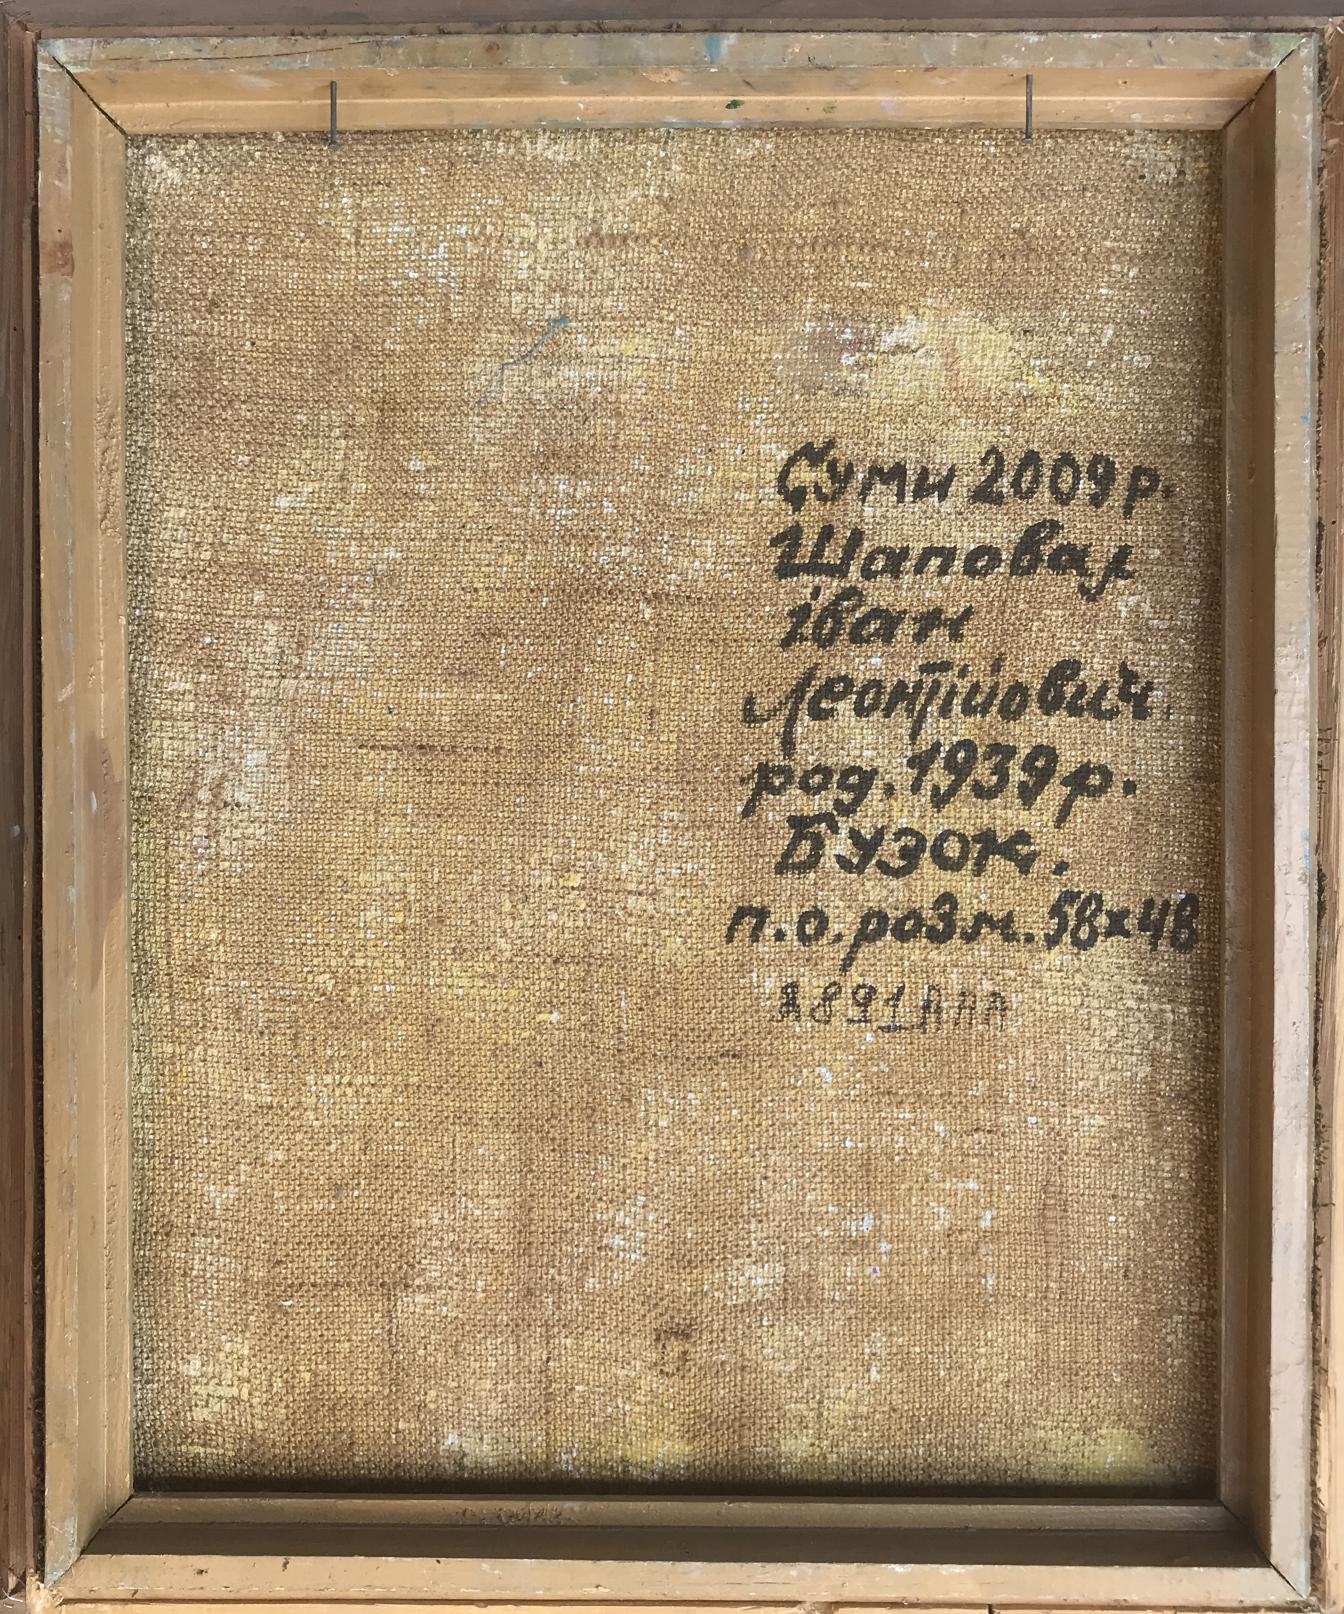 Суми 2009р.
Шаповал
іван
Леонтійович.
род. 1939р.
Бузок.
п.о. розм. 58х48